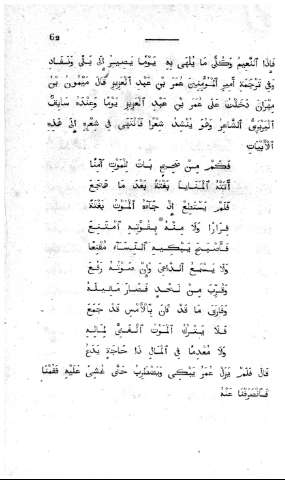 62
فَإِذَا ٱلنَّعِيمُ وَكُلُّ مَا يُلْهَى بِهِ يَوْمًا يَصِيرُ إِلَى بِلًى وَنَفَادِ
وَفِي تَرْجَمَةِ أَمِيرِ ٱلْمُؤْمِنِينَ عُمَرَ بْنِ عَبْدِ ٱلْعَزِيزِ قَالَ مَيْمُونُ بْنُ
مِهْرَانَ دَخَلْتُ عَلَى عُمَرَ بْنِ عَبْدِ ٱلْعَزِيزِ يَوْمًا وَعِنْدَهُ سَابِقٌ
ٱلْبَرْبَرِيُّ ٱلشَّاعِرُ وَهُوَ يُنْشِدُ شِعْرًا فَٱنْتَهَى فِي شِعْرِهِ إِلَى هٰذِهِ
ٱلْأَبْيَاتِ
فَكَمْ مِنْ صَحِيحٍ بَاتَ لِلْمَوْتِ آمِنًا
أَتَتْهُ ٱلْمَنَايَا بَغْتَةً بَعْدَ مَا هَجَعْ
فَلَمْ يَسْتَطِعْ إِذْ جَاءَهُ ٱلْمَوْتُ بَغْتَةً
فِرَارًا وَلَا مِنْهُ بِقُوَّتِهِ ٱمْتَنَعْ
فَأَصْبَحَ تَبْكِيهِ ٱلنِّسَاءُ مُقَنَّعًا
وَلَا يَسْمَعُ ٱلدَّاعِي وَإِنْ صَوْتَهُ رَفَعْ
وَقُرِّبَ مِنْ لَحْدٍ فَصَارَ مَقِيلَهُ
وَفَارَقَ مَا قَدْ كَانَ بِٱلْأَمْسِ قَدْ جَمَعْ
فَلَا يَتْرُكُ ٱلْمَوْتُ ٱلْغَنِيَّ لِمَالِهِ
وَلَا مُعْدِمًا فِي ٱلْمَالِ ذَا حَاجَةٍ يَدَعْ
قَالَ فَلَمْ يَزَلْ عُمَرُ يَبْكِي وَيَضْطَرِبُ حَتَّى غُشِيَ عَلَيْهِ فَقُمْنَا
فَٱنْصَرَفْنَا عَنْهُ